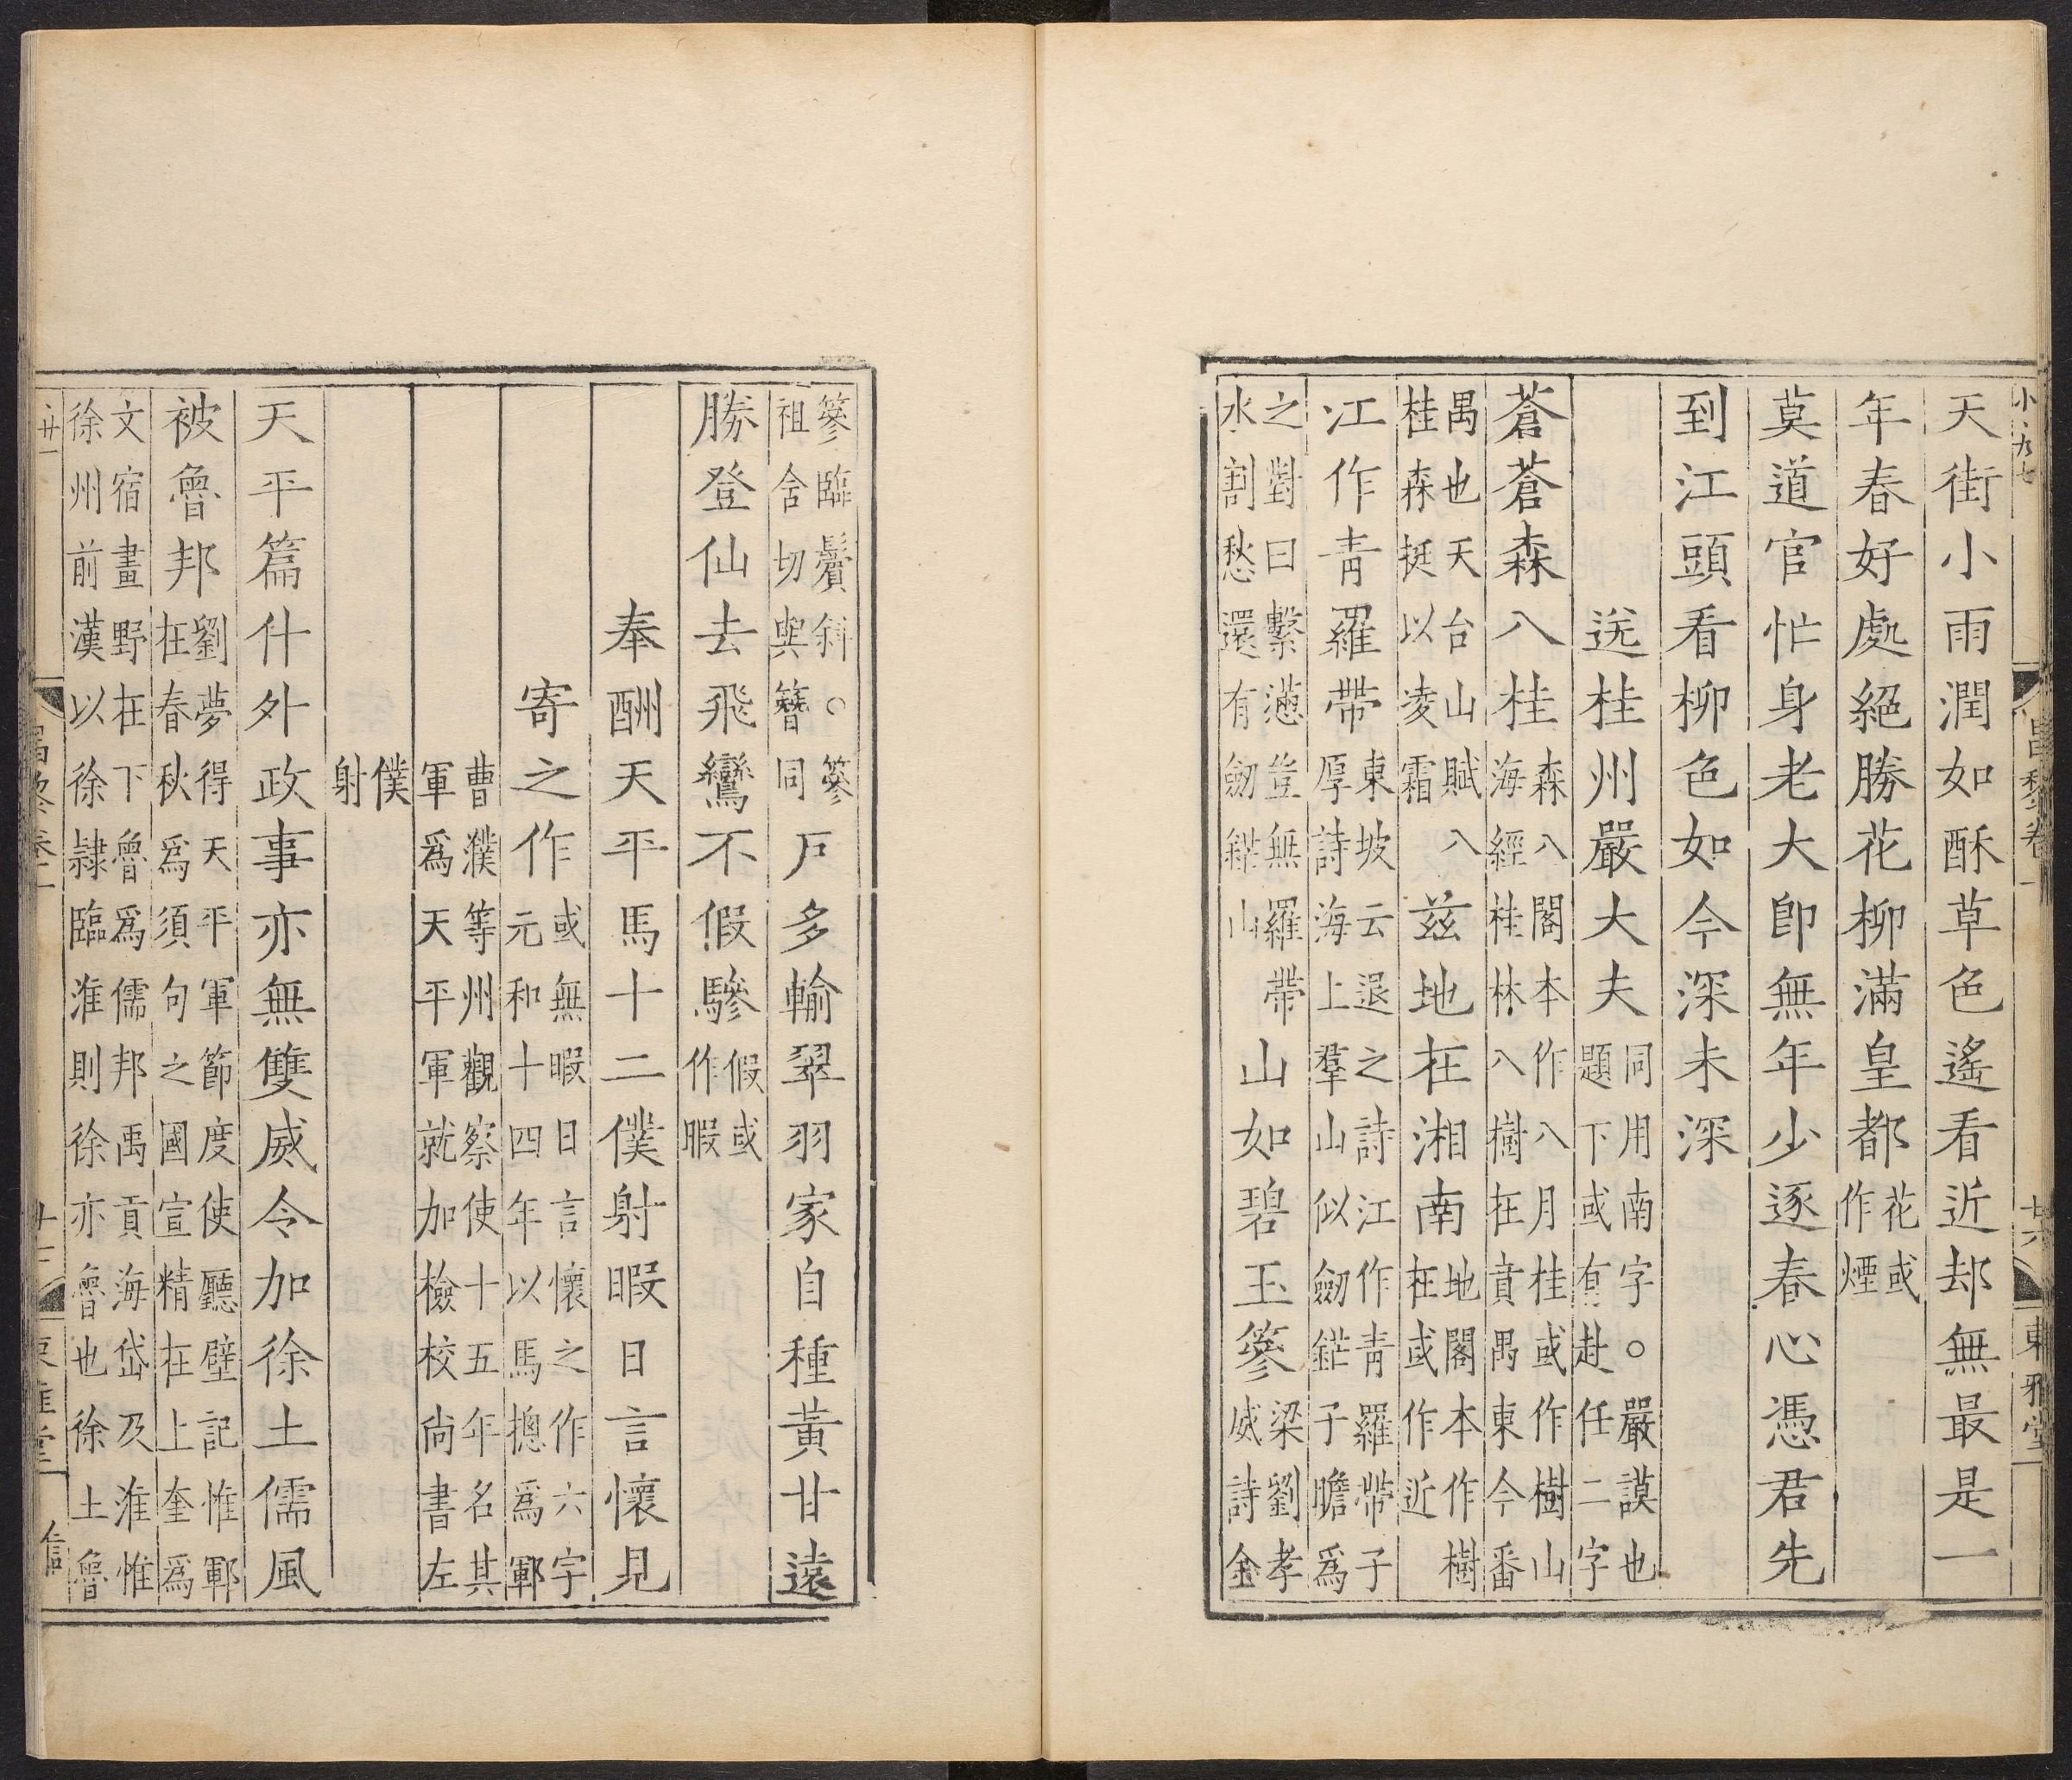 天街小雨潤如酥草色遙看近却無最是一
年春好處絕勝花柳滿皇都花或作煙
莫道官忙身老大即無年少逐春心憑君先
到江頭看柳色如今深未深
送桂州嚴大夫同用南字○嚴謨也題下或有赴任二字
蒼蒼森八桂森八閣本作八月桂或作樹山海經桂林八樹在賁禺東今番
禺也天台山賦八桂森挺以凌霜茲地在湘南地閣本作樹在或作近
江作青羅帶東坡云退之詩江作青羅帶子厚詩海上羣山似劒鋩子瞻爲
之對曰繫懣豈無羅帶水割愁還有劒鋩山山如碧玉篸梁劉孝威詩金
篸臨鬢斜○篸祖含切與簪同戶多輸翠羽家自種黃甘遠
勝登仙去飛鸞不假驂假或作暇
奉酬天平馬十二僕射暇日言懷見
寄之作或無暇日言懷之作六字元和十四年以馬摠爲鄆
曹濮等州觀察使十五年名其軍爲天平軍就加檢校尚書左
僕射
天平篇什外政事亦無雙威令加徐土儒風
被魯邦劉夢得天平軍節度使廳壁記惟鄆在春秋爲須句之國宣精在上奎爲
文宿畫野在下魯爲儒邦禹貢海岱及淮惟徐州前漢以徐隸臨淮則徐亦魯也徐土魯
昌黎卷十
廿六
東雅堂